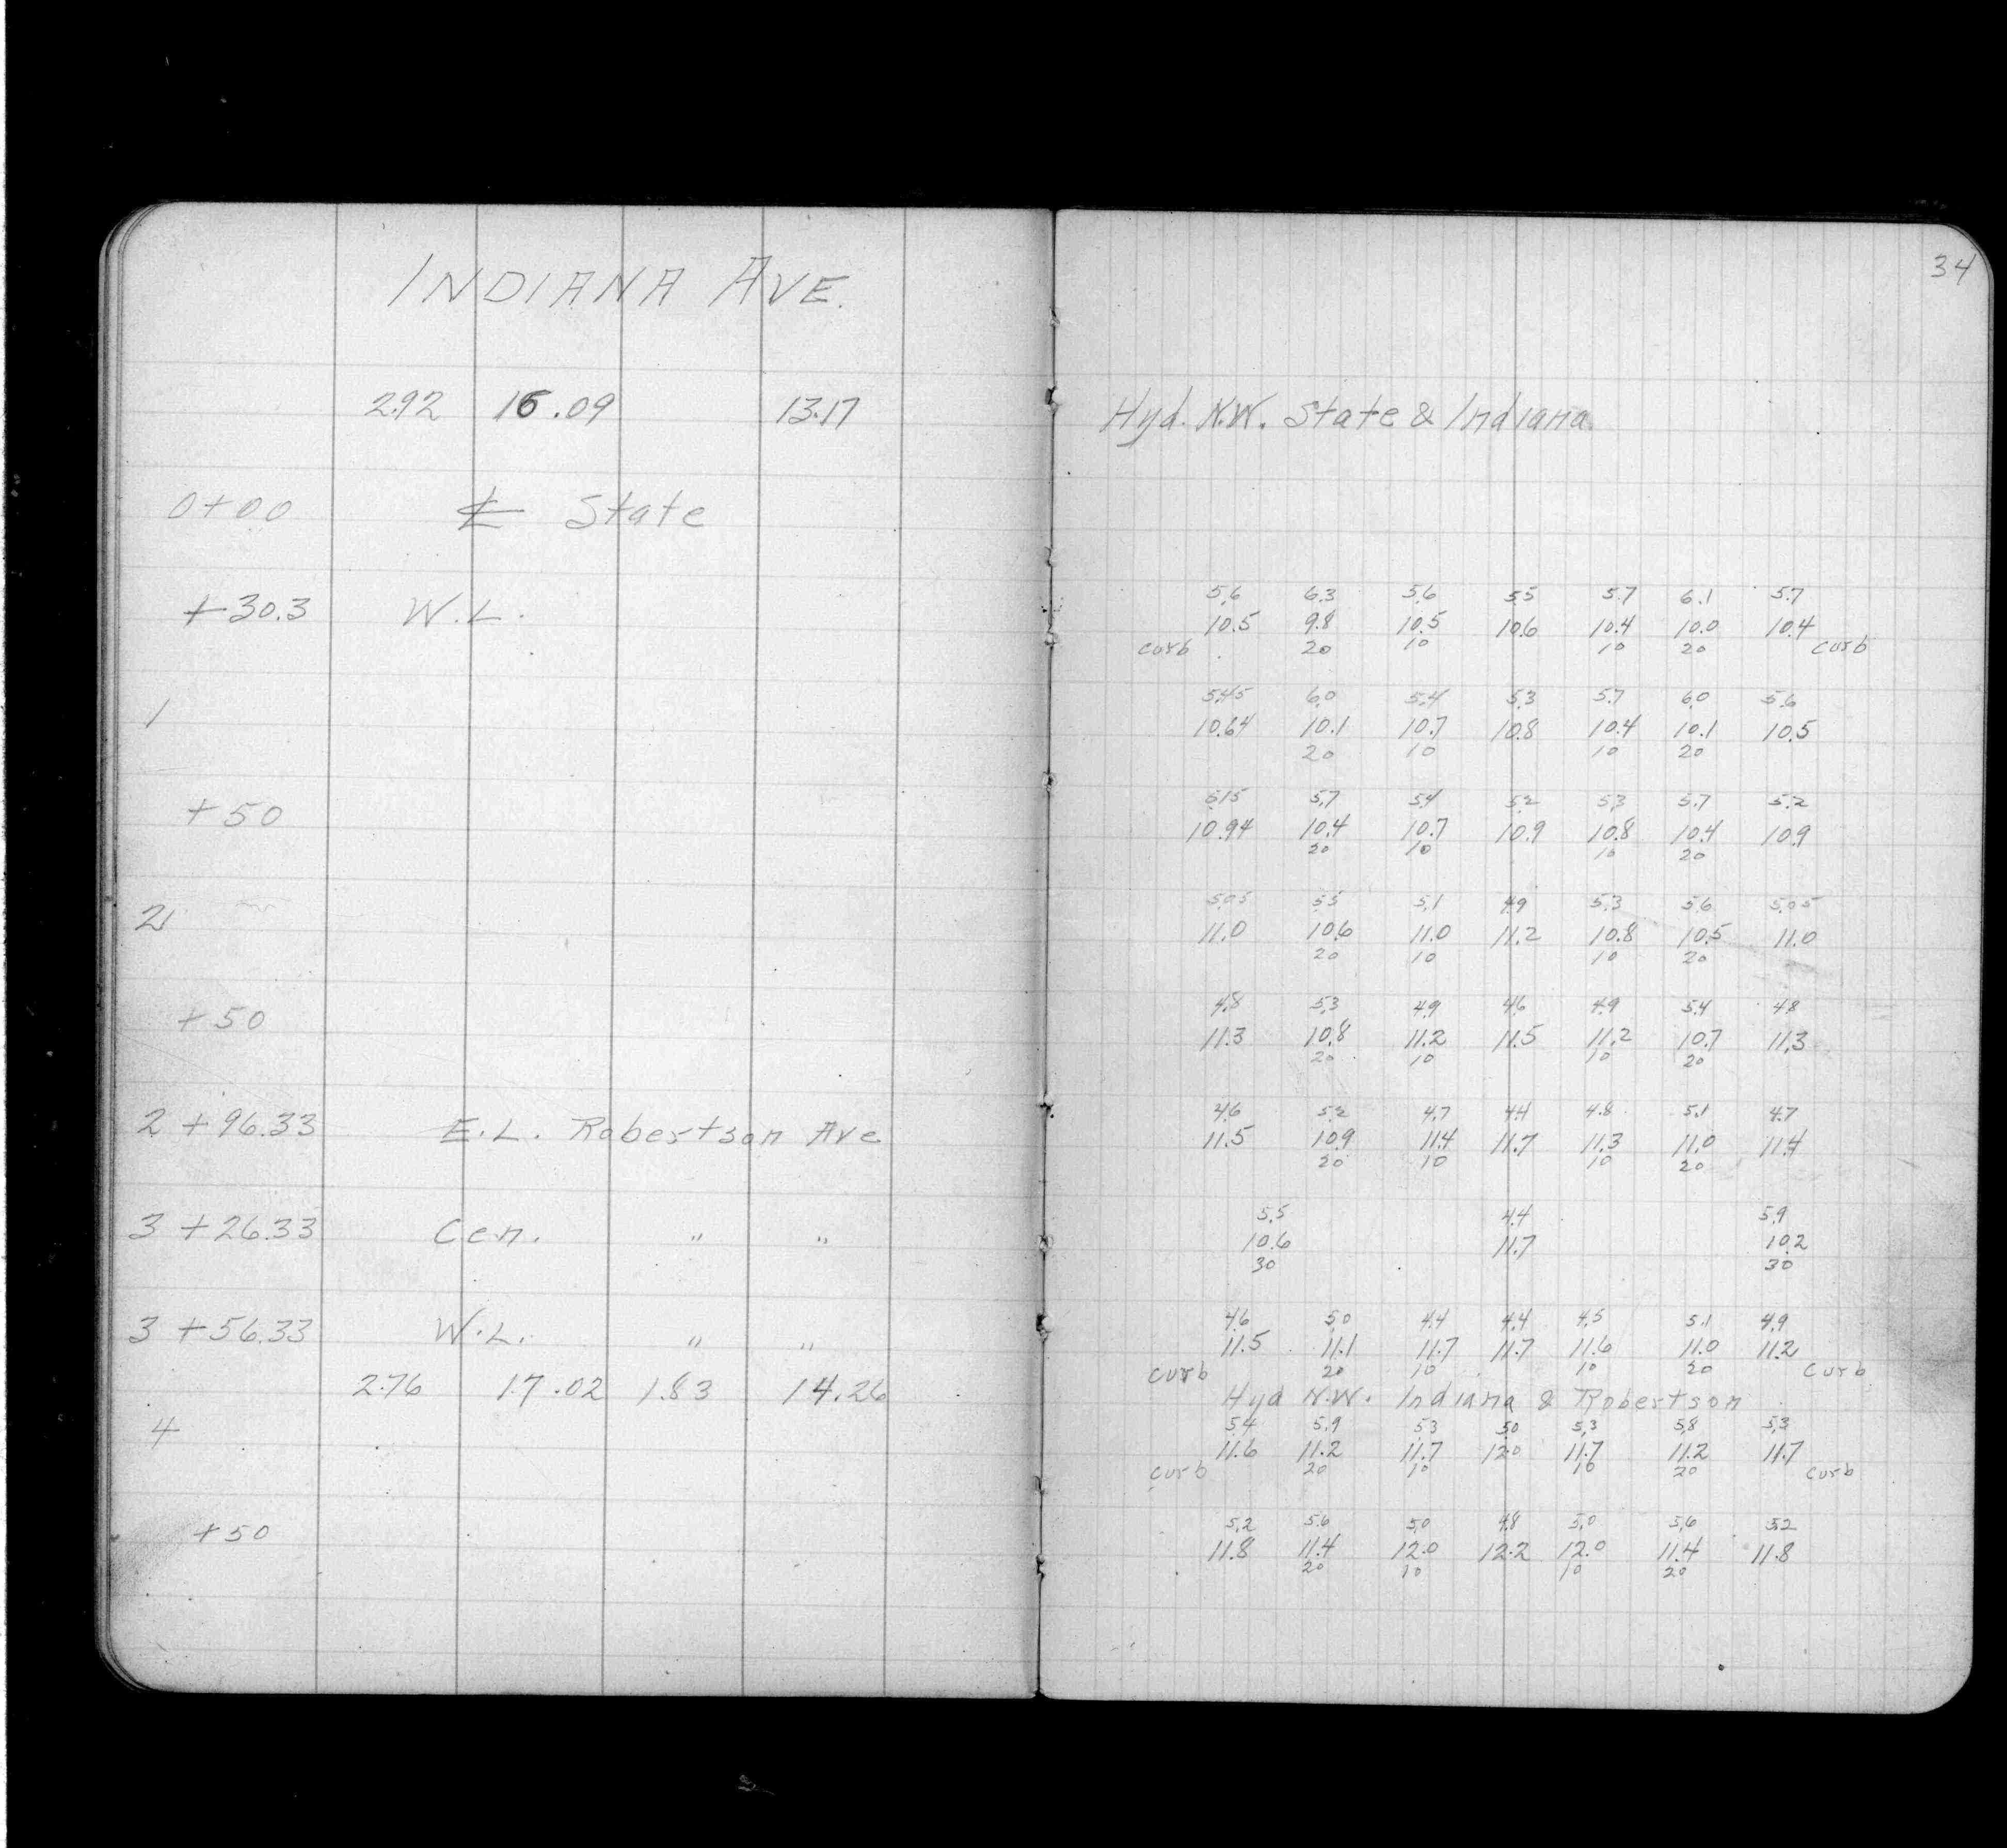 INDIANA AVE.
2.92 16.09 13.17
0+00 ℄ State
+30.3 W.L.
1
+50
2
+50
2 +96.33 E.L. Robertson Ave
3 +26.33 Cen. " "
3 +56.33 W.L. " "
2.76 17.02 1.83 14.26
4
+50
34
Hyd. N.W. State & Indiana
5.6 6.3 5.6 5.5 5.7 6.1 5.7
10.5 9.8 10.5 10.6 10.4 10.0 10.4
curb 20 10 10 20 curb
5.45 6.0 5.4 5.3 5.7 6.0 5.6
10.64 10.1 10.7 10.8 10.4 10.1 10.5
20 10 10 20
5.15 5.7 5.4 5.2 5.3 5.7 5.2
10.94 10.4 10.7 10.9 10.8 10.4 10.9
20 10 10 20
5.05 5.5 5.1 4.9 5.3 5.6 5.05
11.0 10.6 11.0 11.2 10.8 10.5 11.0
20 10 10 20
4.8 5.3 4.9 4.6 4.9 5.4 4.8
11.3 10.8 11.2 11.5 11.2 10.7 11.3
20 10 10 20
4.6 5.2 4.7 4.4 4.8 5.1 4.7
11.5 10.9 11.4 11.7 11.3 11.0 11.4
20 10 10 20
5.5 4.4 5.9
10.6 11.7 10.2
30 30
4.6 5.0 4.4 4.4 4.5 5.1 4.9
11.5 11.1 11.7 11.7 11.6 11.0 11.2
curb 20 10 10 20 curb
Hyd N.W. Indiana & Robertson
5.4 5.9 5.3 5.0 5.3 5.8 5.3
11.6 11.2 11.7 12.0 11.7 11.2 11.7
curb 20 10 10 20 curb
5.2 5.6 5.0 4.8 5.0 5.6 5.2
11.8 11.4 12.0 12.2 12.0 11.4 11.8
20 10 10 20